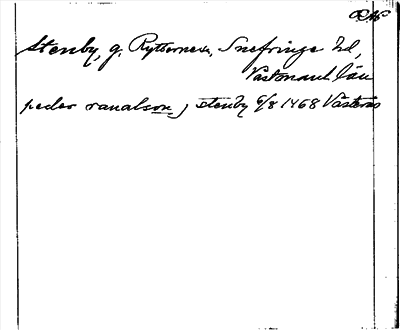 Stenby, g. Rytterneva, Snefringe hd,
Västmanl. län
peder ranalson j stenby 6/8 1468 Västerås